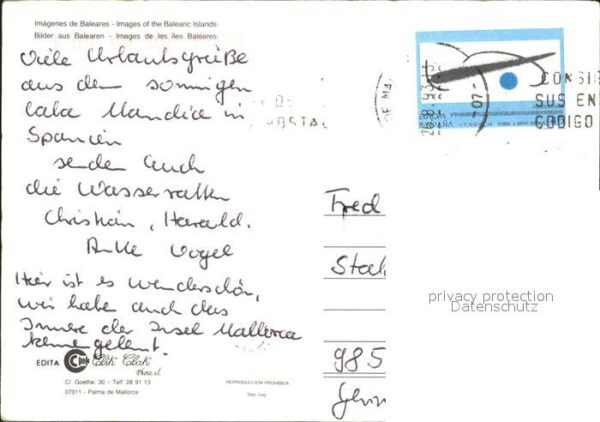 Imágenes de Baleares - Images of the Balearic Islands
Bilder aus Balearen - Images de les Iles Baléares
Viele Urlaubsgrüße
aus dem sonnigen
Cala Mandia in
Spanien
senden Euch
die Wasserratten
Christian, Harald.
Anke Vogel
Hier ist es wunderschön,
wir habe auch das
Innere der Insel Mallorca
kennengelernt.
EDITA Clik Clak
Photo, s.l.
C/. Goethe, 30 - Telf. 28 91 13
07011 - Palma de Mallorca
REPRODUCCION PROHIBIDA
Dep. Leg.
CONSIG
SUS EN
CODIGO
OSTAL
-07-
EUROPA
ESPAÑA
Fred
Stad
985
privacy protection
Datenschutz